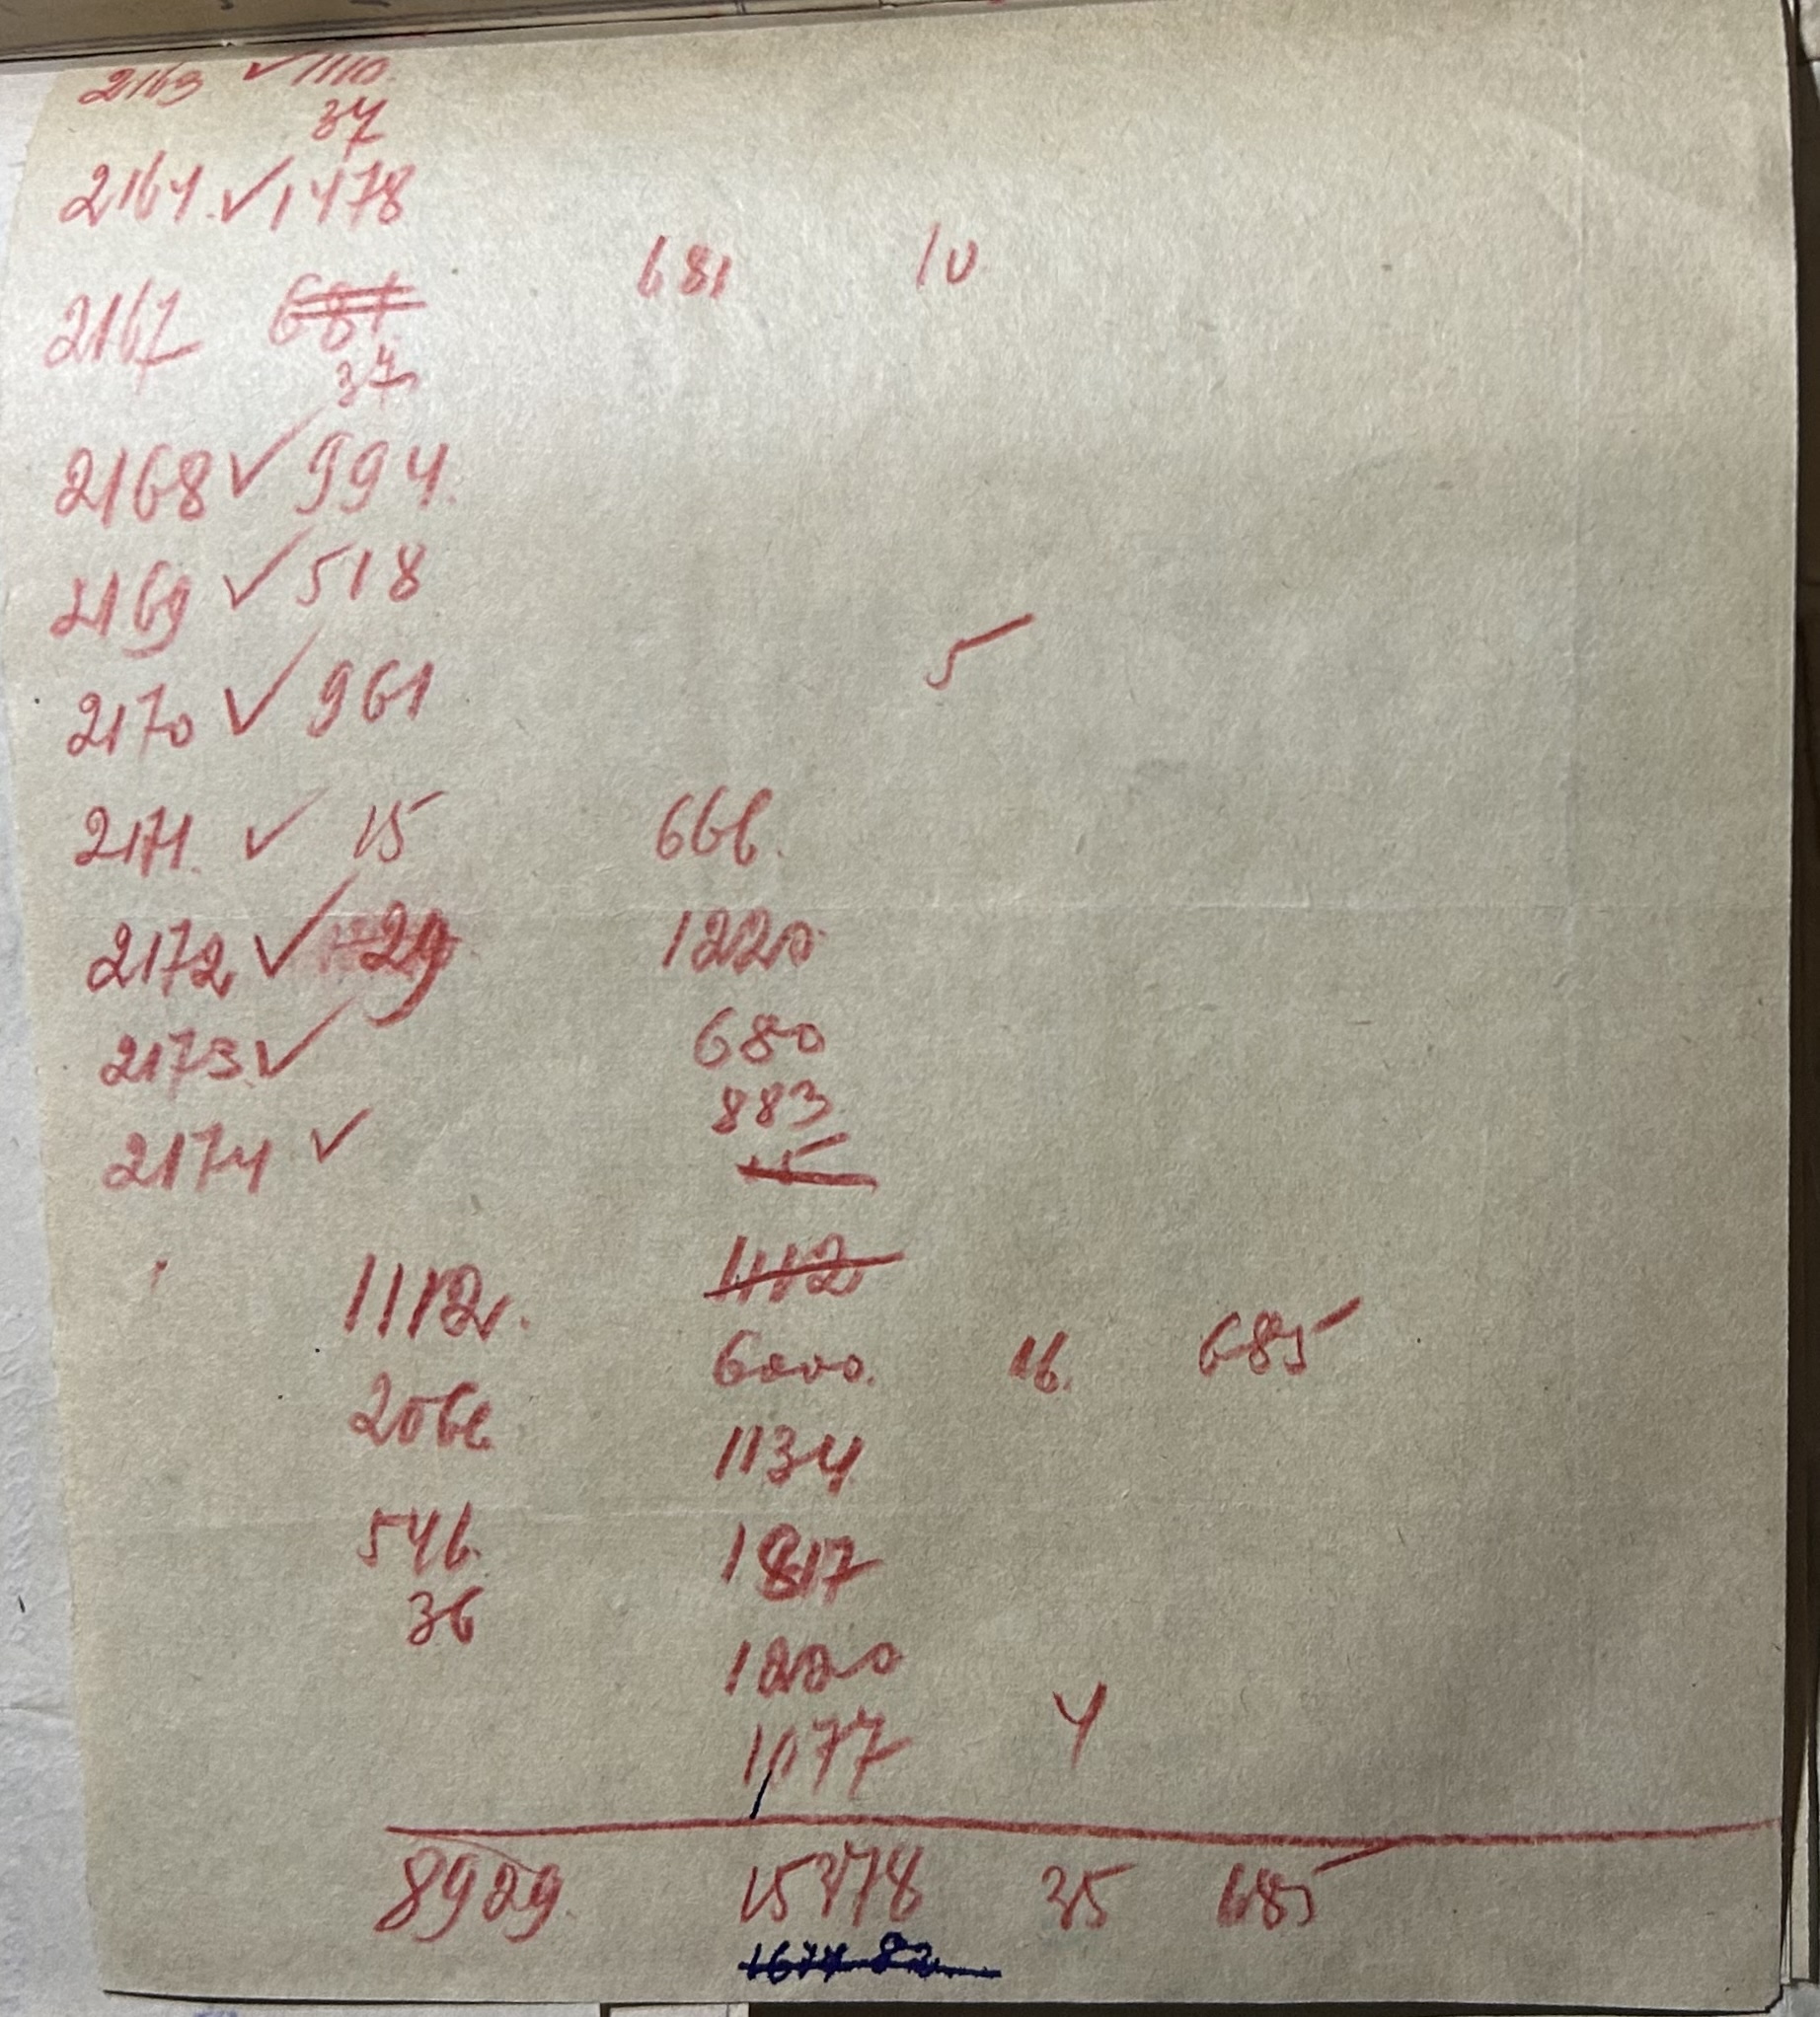 2163 ✓ 1110.
37
2164. ✓ 1478
2167 681 681 10
37
2168 ✓ 994.
2169 ✓ 518
5
2170 ✓ 961
2171. ✓ 15 666.
2172 ✓ 29 1220
2173 ✓ 680
883
2174 ✓ 15
1112. 1112
6000. 16. 685
2066 1134
546. 1817
36
1220
1077 4
8929. 15378 35 685